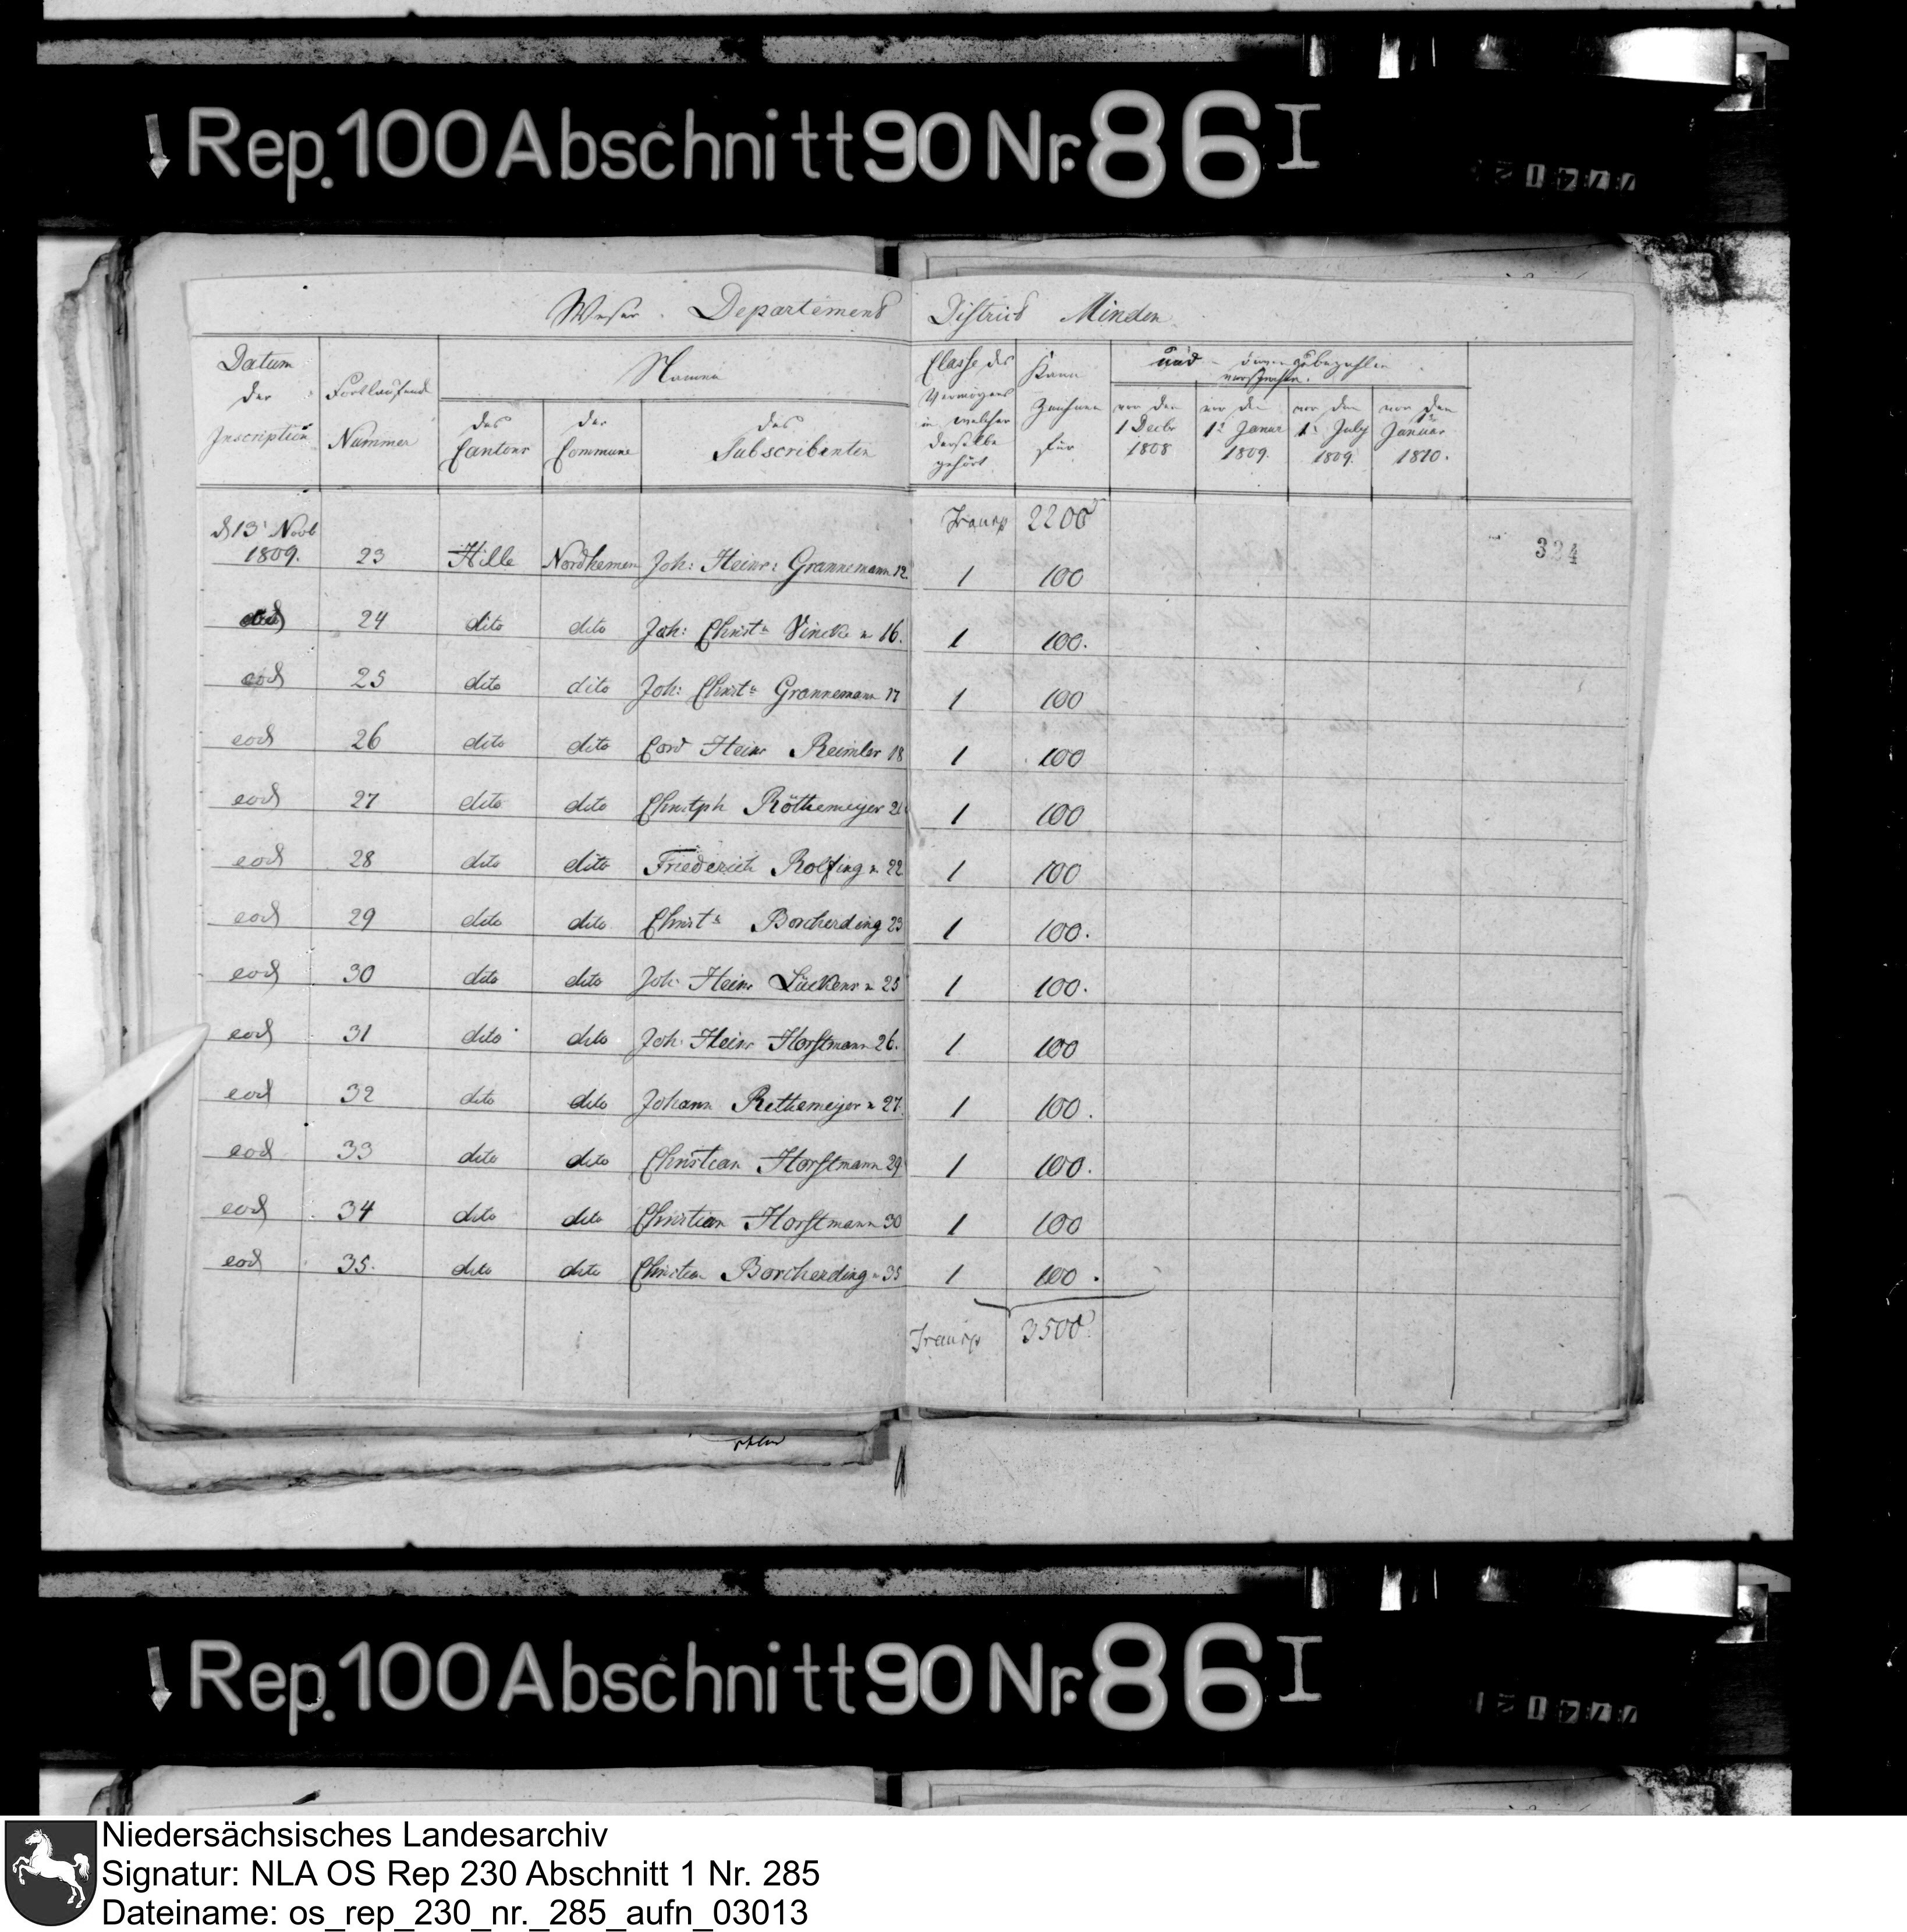 Rep. 100 Abschnitt 90 Nr. 86 I
Weser Departement District Minden
Datum der Inscription
Fortlaufende Nummer
Namen
des Cantons
der Commune
des Subscribenten
Classe des Vermögens in welcher derselbe gehört
Kann Zeichnen für
und
vor den 1 Decbr 1808
vor den 1t Januar 1809.
vor den 1t July 1809.
vor den 1t Januar 1810.
Transp 2200
324
d 13t Novb 1809. 23 Hille Nordhemen Joh: Heinr: Grannemann 12. 1 100
eod 24 dito dito Joh: Christ Vincke n 16. 1 100.
eod 25 dito dito Joh: Christ Grannemann 17 1 100
eod 26 dito dito Cord Heinr Reimler 18 1 100
eod 27 dito dito Christph Röthemeijer 21 1 100
eod 28 dito dito Friederich Rolfing n 22 1 100
eod 29 dito dito Christ Borcherding 23 1 100.
eod 30 dito dito Joh Heinr Lückens n 25 1 100.
eod 31 dito dito Joh Heinr Horstmann 26. 1 100
eod 32 dito dito Johann Rethemeijer n 27. 1 100.
eod 33 dito dito Christian Horstmann 29 1 100.
eod 34 dito dito Christian Horstmann 30 1 100
eod 35. dito dito Christian Borcherding n 35 1 100.
Transp 3500
Rep. 100 Abschnitt 90 Nr. 86 I
Niedersächsisches Landesarchiv
Signatur: NLA OS Rep 230 Abschnitt 1 Nr. 285
Dateiname: os_rep_230_nr._285_aufn_03013